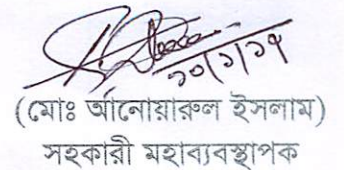 ২০/১/১৫
(মোঃ আনোয়ারুল ইসলাম)
সহকারী মহাব্যবস্থাপক